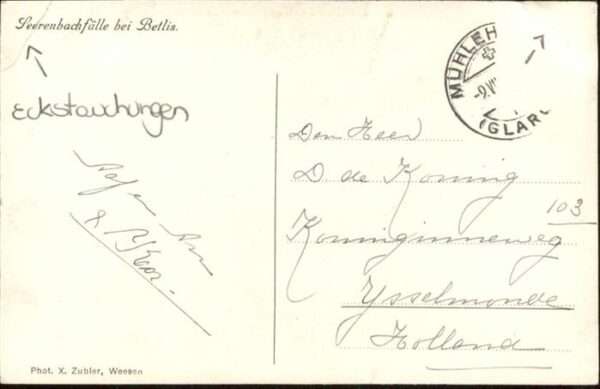 Seerenbachfälle bei Betlis.
Eckstauchungen
MÜHLEH
-9.VII
(GLAR
Den Heer
D de Koning
103
Koninginneweg
Ysselmonde
Holland
Phot. X. Zubler, Weesen